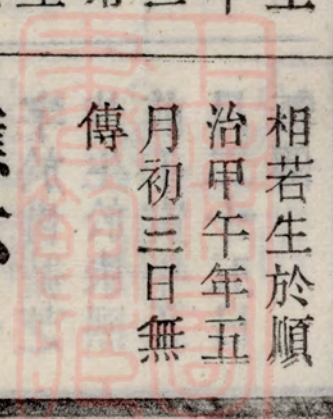 相若生於順
治甲午年五
月初三日無
傳